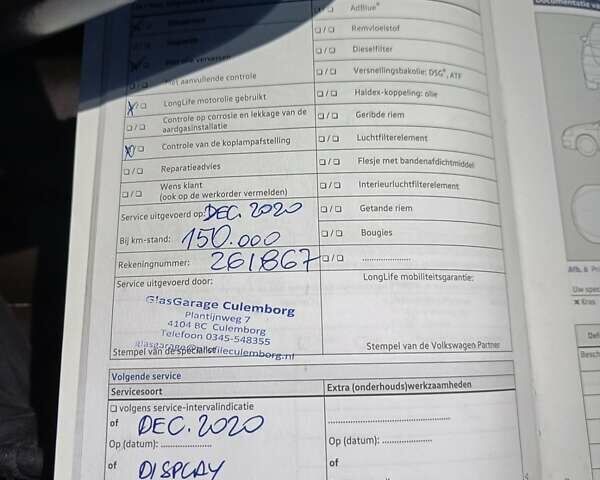 AdBlue®
Remvloeistof
Dieselfilter
Met aanvullende controle
Versnellingsbakolie: DSG®, ATF
LongLife motorolie gebruikt
Haldex-koppeling: olie
Controle op corrosie en lekkage van de aardgasinstallatie
Geribde riem
Controle van de koplampafstelling
Luchtfilterelement
Reparatieadvies
Flesje met bandenafdichtmiddel
Wens klant
(ook op de werkorder vermelden)
Interieurluchtfilterelement
Service uitgevoerd op: DEC. 2020
Getande riem
Bij km-stand: 150.000
Bougies
Rekeningnummer: 261867
....................
Service uitgevoerd door:
LongLife mobiliteitsgarantie:
GlasGarage Culemborg
Plantijnweg 7
4104 BC Culemborg
Telefoon 0345-548355
Stempel van de specialist
Stempel van de Volkswagen Partner
Volgende service
Servicesoort
Extra (onderhouds)werkzaamheden
volgens service-intervalindicatie
of DEC. 2020
Op (datum): ....................
Op (datum): ....................
of DISPLAY
of